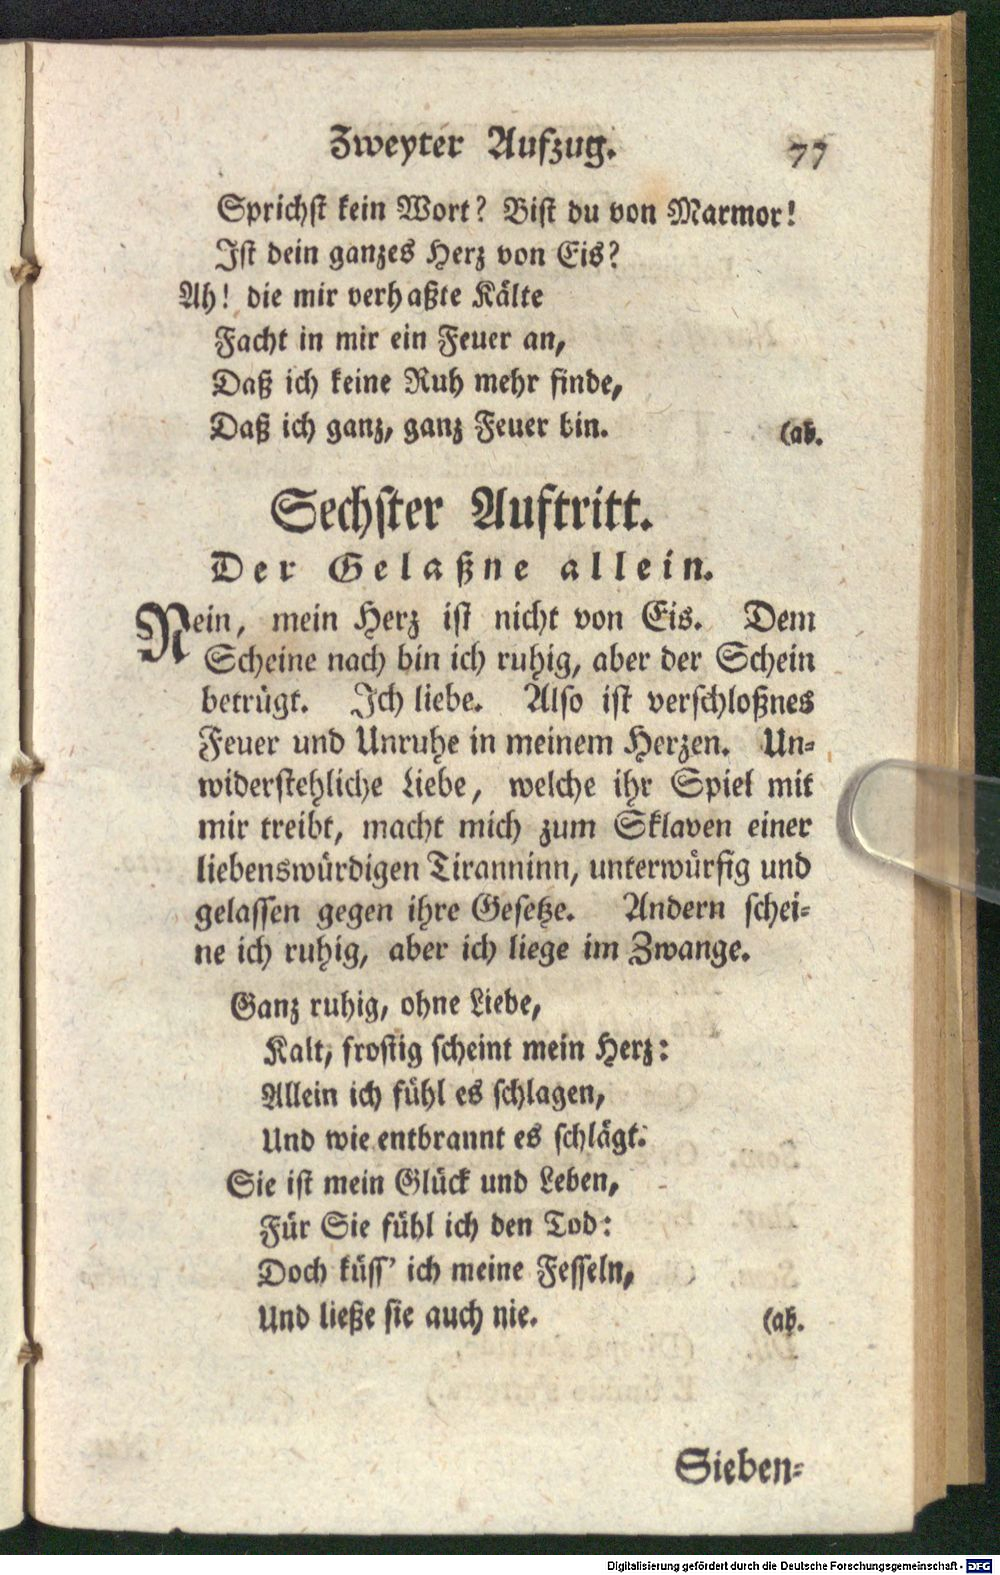 Zweyter Aufzug. 77
Sprichst kein Wort? Bist du von Marmor!
Ist dein ganzes Herz von Eis?
Ah! die mir verhaßte Kälte
Facht in mir ein Feuer an,
Daß ich keine Ruh mehr finde,
Daß ich ganz, ganz Feuer bin. (ab.
Sechster Auftritt.
Der Gelaßne allein.
Nein, mein Herz ist nicht von Eis. Dem
Scheine nach bin ich ruhig, aber der Schein
betrügt. Ich liebe. Also ist verschloßnes
Feuer und Unruhe in meinem Herzen. Un-
widerstehliche Liebe, welche ihr Spiel mit
mir treibt, macht mich zum Sklaven einer
liebenswürdigen Tiranninn, unterwürfig und
gelassen gegen ihre Gesetze. Andern schei-
ne ich ruhig, aber ich liege im Zwange.
Ganz ruhig, ohne Liebe,
Kalt, frostig scheint mein Herz:
Allein ich fühl es schlagen,
Und wie entbrannt es schlägt.
Sie ist mein Glück und Leben,
Für Sie fühl ich den Tod:
Doch küss' ich meine Fesseln,
Und ließe sie auch nie. (ab.
Sieben-
Digitalisierung gefördert durch die Deutsche Forschungsgemeinschaft - DFG